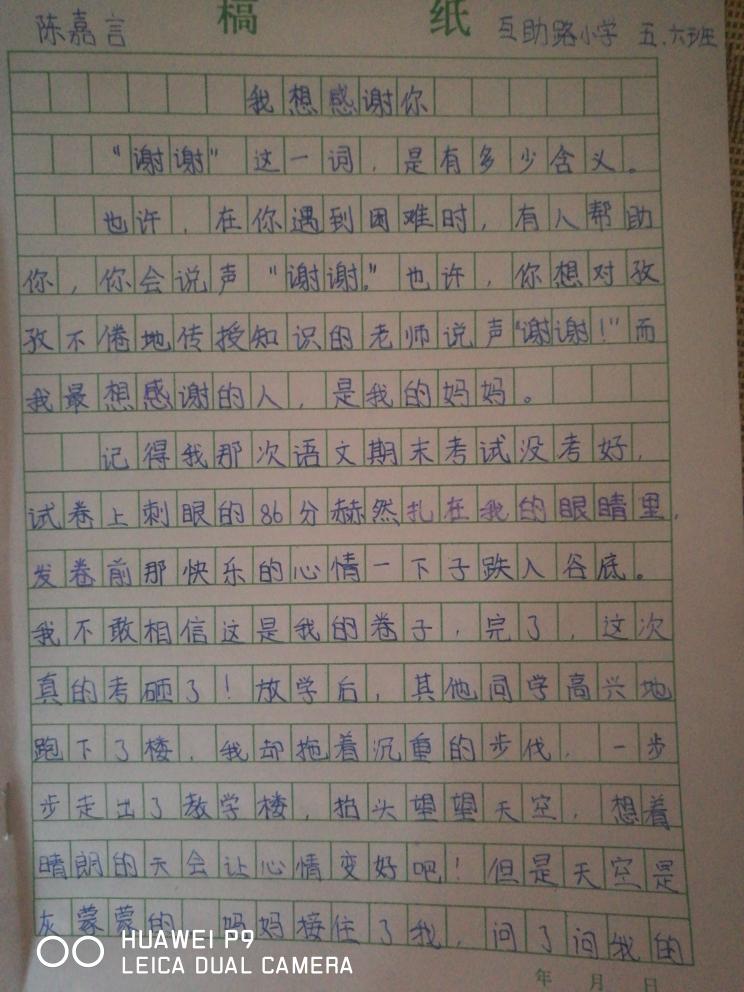 稿 纸
陈嘉言 互助路小学 五.六班
我想感谢你
“谢谢”这一词,是有多少含义。
也许,在你遇到困难时,有人帮助
你,你会说声“谢谢。”也许,你想对孜
孜不倦地传授知识的老师说声“谢谢!”而
我最想感谢的人,是我的妈妈。
记得我那次语文期末考试没考好,
试卷上刺眼的86分赫然扎在我的眼睛里,
发卷前那快乐的心情一下子跌入谷底。
我不敢相信这是我的卷子,完了,这次
真的考砸了!放学后,其他同学高兴地
跑下了楼,我却拖着沉重的步伐,一步
步走出了教学楼,抬头望望天空,想着
晴朗的天会让心情变好吧!但是天空是
灰蒙蒙的,妈妈接住了我,问了问我的
HUAWEI P9
LEICA DUAL CAMERA
年 月 日